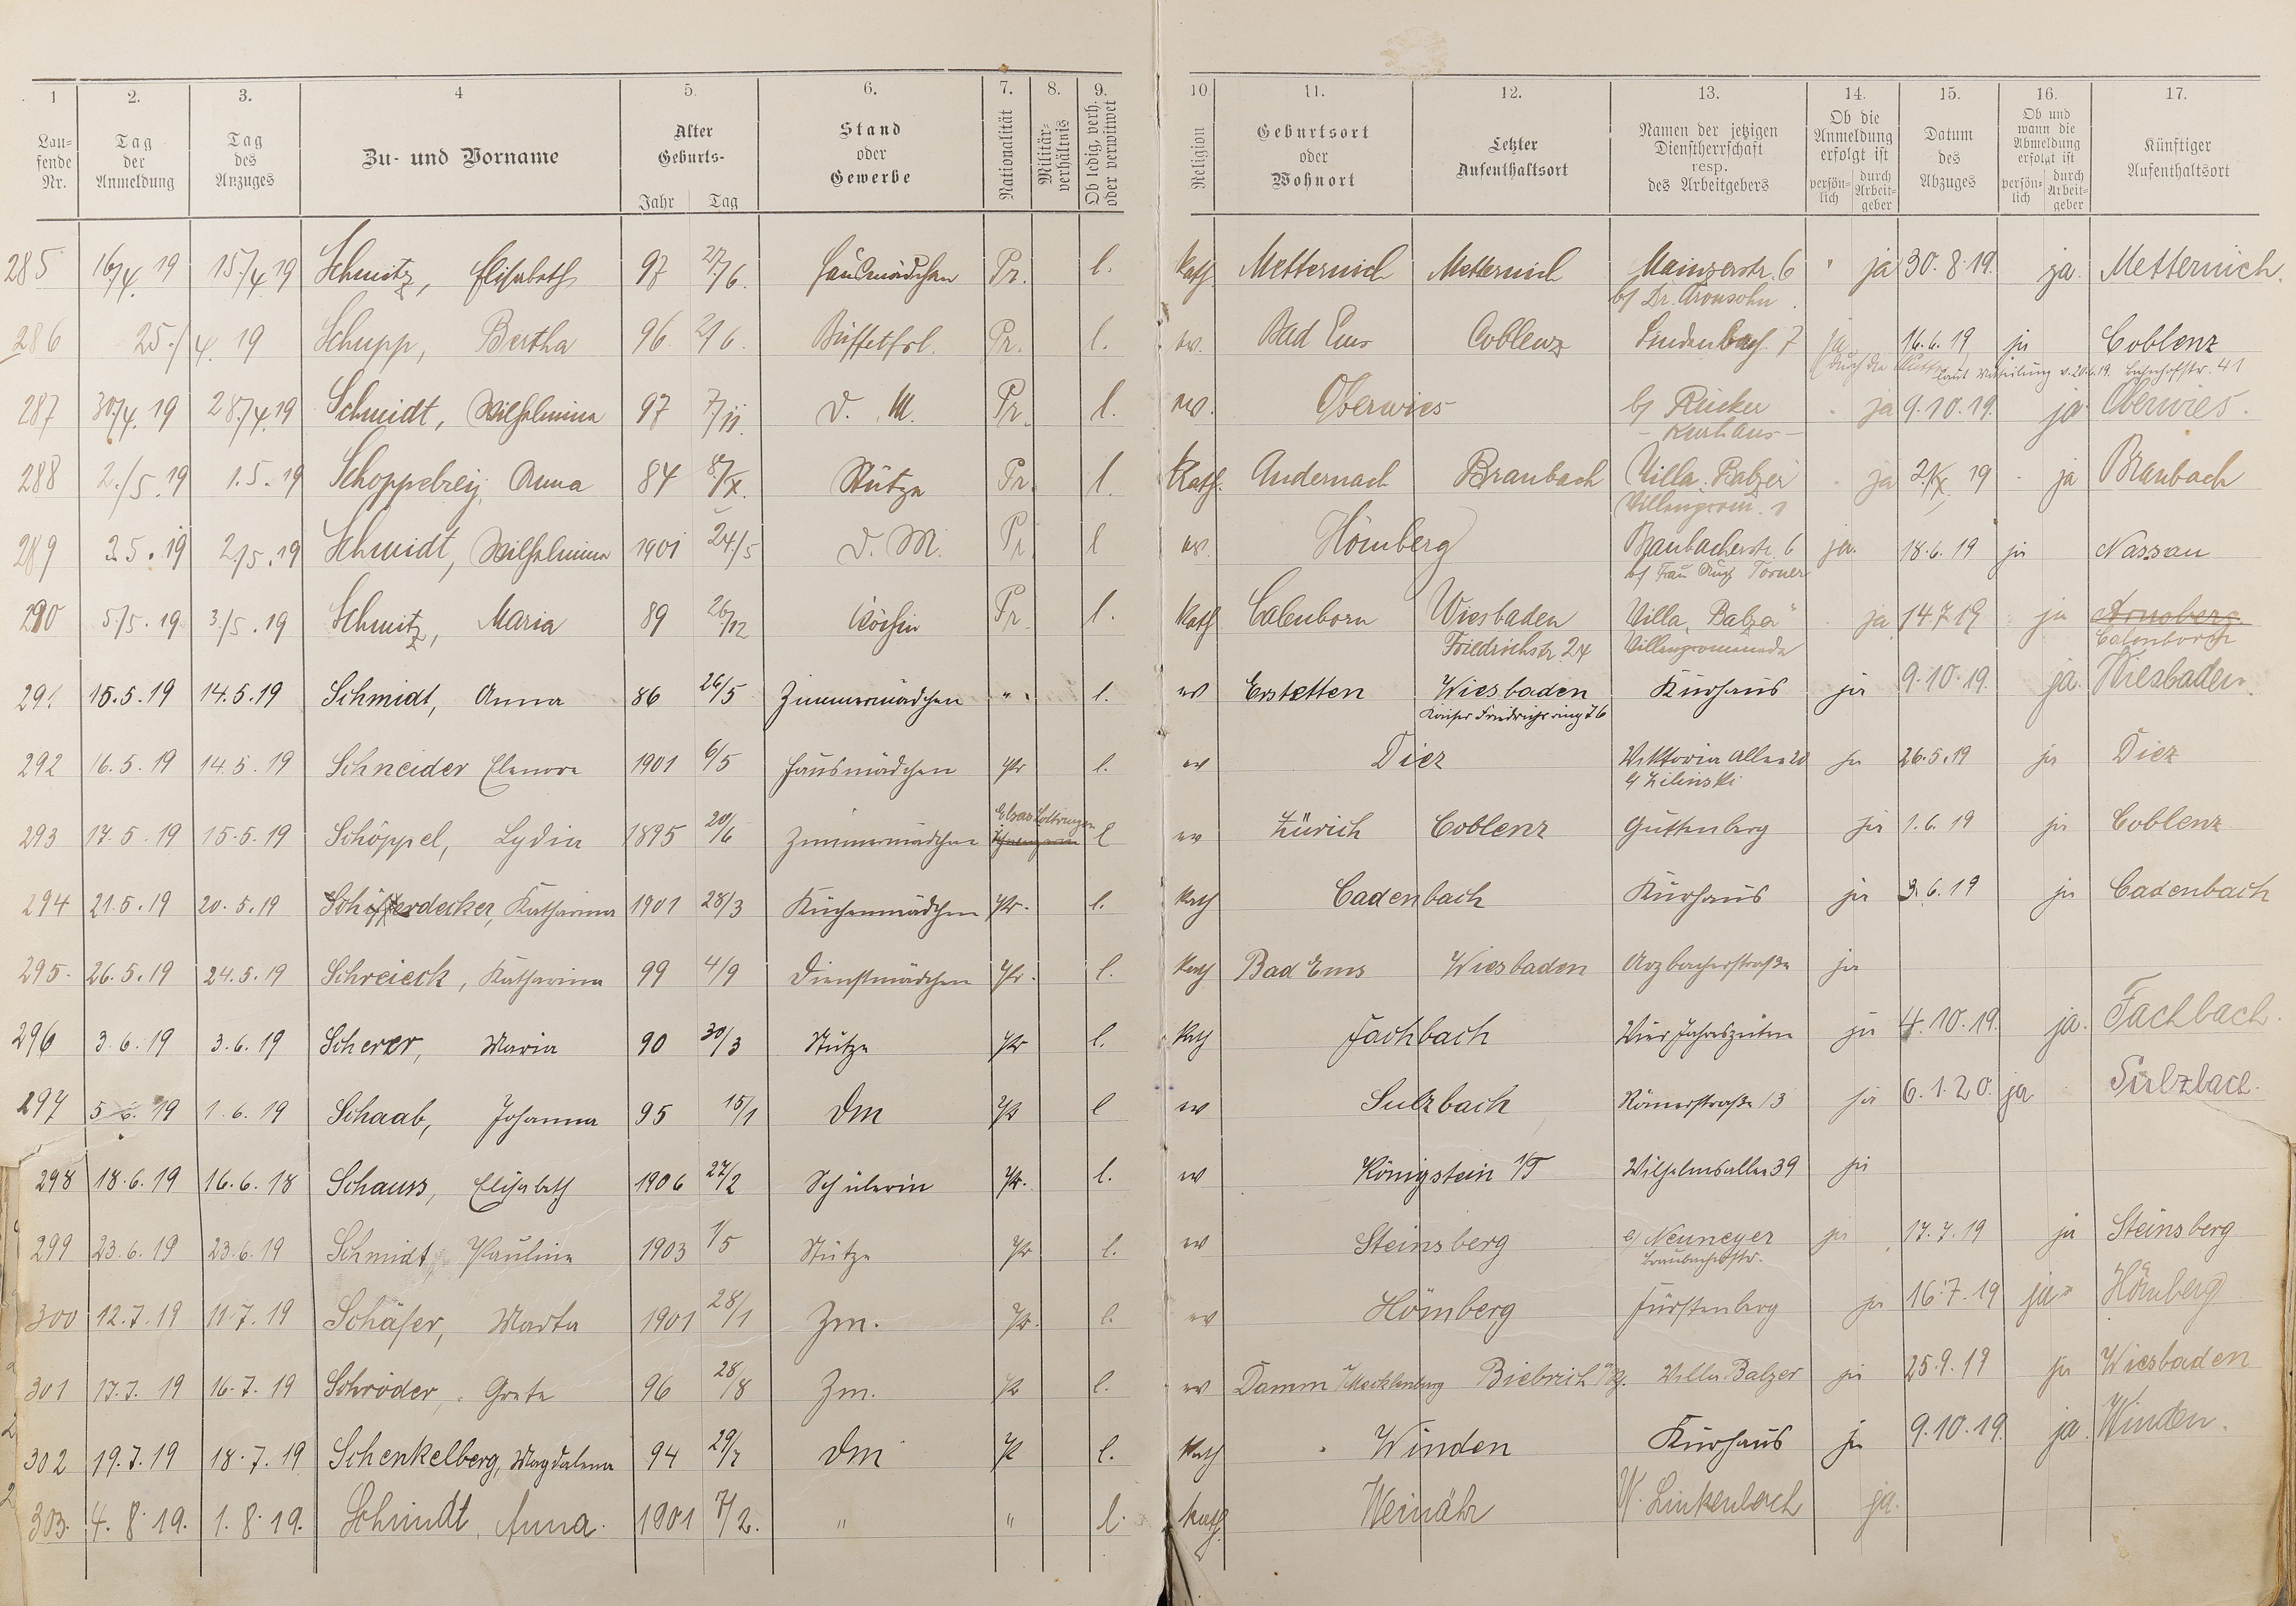 1 2. 3. 4 5. 6. 7. 8. 9. 10 11. 12. 13. 14. 15. 16. 17.
Laufende Nr. Tag der Anmeldung Tag des Anzuges Zu- und Vorname Alter Geburts- Jahr Tag Stand oder Gewerbe Nationalität Militärverhältnis Ob ledig, verh. oder verwitwet Religion Geburtsort oder Wohnort Letzter Aufenthaltsort Namen der jetzigen Dienstherrschaft resp. des Arbeitgebers Ob die Anmeldung erfolgt ist persönlich durch Arbeitgeber Datum des Abzuges Ob und wann die Abmeldung erfolgt ist persönlich durch Arbeitgeber Künftiger Aufenthaltsort
285 16/4. 19 15./4. 19 Schmitz, Elisabeth 97 27/6. Hausmädchen Pr. l. Kath Metternich Metternich Mainzerstr. 6 " ja 30. 8. 19. ja. Metternich.
b/ Dr. Aronsohn
286 25./4. 19 Schupp, Bertha 96 2/6. Büffetfrl. Pr. l. ev. Bad Ems Coblenz Lindenbach 7 ja 16.6.19 ja Coblenz
durch die laut Mitteilung v. 20.6.19. Bahnhofstr. 41
287 30/4. 19 28./4. 19 Schmidt, Wilhelmina 97 7/11. D. M. Pr. l. ev. Oberwies b/ Rücker ja 9.10.19. ja Oberwies.
- Kurhaus -
288 2./5. 19 1. 5. 19 Schoppebrey, Anna 84 8/X. Stütze Pr. l. Kath. Andernach Braubach Villa Balzer ja 2/X. 19 ja Braubach
Villenprom. 1
289 3.5. 19 2./5. 19 Schmidt, Wilhelmina 1901 24/5 D. M. Pr. l ev. Hömberg Braubacherstr. 6 ja. 18.6.19 ja Nassau
b/ Frau Aug. Torner
290 5/5. 19 3./5. 19 Schmitz, Maria 89 26/12 Köchin Pr. l. Kath Calenborn Wiesbaden Villa "Balzer" ja 14.7.19 ja Arnsberg
Friedrichstr. 24 Villenpromenade Calenborn
291 15.5.19 14.5.19 Schmidt, Anna 86 26/5 Zimmermädchen " l. ev Erstetten Wiesbaden Kurhaus ja 9.10.19. ja. Wiesbaden.
Kaiser Friedrichring 76
292 16.5.19 14.5.19 Schneider Elenore 1901 6/5 Hausmädchen Pr l. ev Diez Viktoria Allee 20 ja 26.5.19 ja Diez
b/ Zilinski
293 17.5.19 15.5.19 Schöppel, Lydia 1895 20/6 Zimmermädchen Elsas Lothringen l ev Zürich Coblenz Guttenberg ja 1.6.19 ja Coblenz
294 21.5.19 20.5.19 Schifferdecker, Katharina 1901 28/3 Küchenmädchen Pr. l. Kath Cadenbach Kurhaus ja 3.6.19 ja Cadenbach
295. 26.5.19 24.5.19 Schreieck, Katharina 99 4/9 Dienstmädchen Pr. l. Kath Bad Ems Wiesbaden Arzbacherstraße ja
296 3.6.19 3.6.19 Scherer, Maria 90 30/3 Stütze Pr l. Kath Fachbach Vier Jahreszeiten ja 4.10.19. ja. Fachbach.
297 5.6.19 1.6.19 Schaab, Johanna 95 15/1 Dm Pr l ev Sulzbach Römerstraße 13 ja 6.1.20. ja Sulzbach.
298 18.6.19 16.6.18 Schauss, Elisabeth 1906 27/2 Schülerin Pr. l. ev Königstein i/T Wilhelmsallee 39 ja
299 23.6.19 23.6.19 Schmidt, Pauline 1903 1/5 Stütze Pr l. ev Steinsberg b/ Neuneyer ja 17.7.19 ja Steinsberg
Braubacherstr.
300 12.7.19 11.7.19 Schäfer, Marta 1901 28/1 Zm. Pr. l. ev Hömberg Fürstenberg ja 16.7.19 ja Hömberg
301 17.7.19 16.7.19 Schröder, Grete 96 28/8 Zm. Pr l. ev Damm i/Mecklenburg Biebrich a/Rh. Villa Balzer ja 25.9.19 ja Wiesbaden
302 19.7.19 18.7.19 Schenkelberg, Magdalena 94 29/7 Dm Pr l. Kath Winden Kurhaus ja 9.10.19. ja. Winden.
303. 4.8.19. 1.8.19. Schmidt, Anna. 1901 7/2. " " l. Kath. Weinähr W. Linkenbach ja.